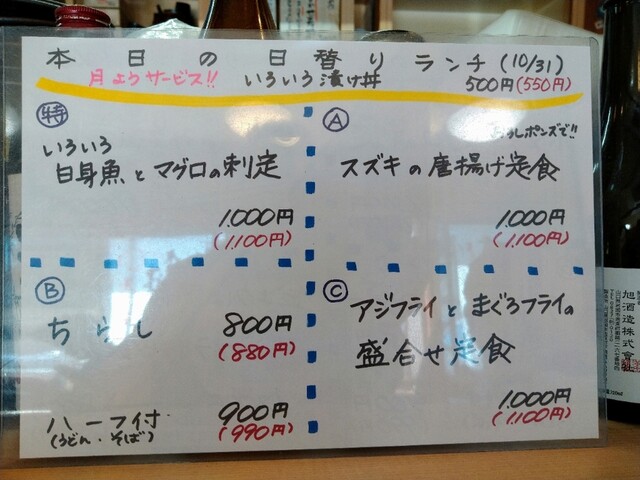 本日の日替りランチ(10/31)
月ようサービス!! いろいろ漬け丼 500円(550円)
特
いろいろ
白身魚とマグロの刺定
1.000円
(1.100円)
A
おろしポンズで!!
スズキの唐揚げ定食
1.000円
(1.100円)
B
ちらし 800円
(880円)
ハーフ付 900円
(うどん・そば) (990円)
C
アジフライとまぐろフライの
盛合せ定食
1.000円
(1.100円)
旭酒造株式會社